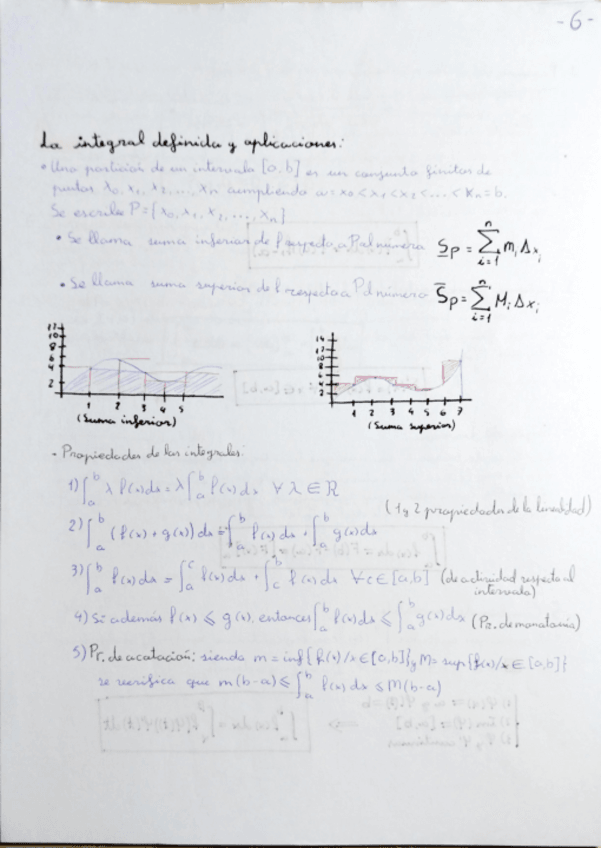 -6-
La integral definida y aplicaciones:
• Una partición de un intervalo [a,b] es un conjunto finitos de
puntos x₀, x₁, x₂, ..., xₙ cumpliendo a=x₀<x₁<x₂<...<xₙ=b.
Se escribe P={x₀, x₁, x₂, ..., xₙ}
• Se llama suma inferior de f respecto a P al número S̲p = ∑ⁿᵢ₌₁ mᵢ Δxᵢ
• Se llama suma superior de f respecto a P al número S̅p = ∑ⁿᵢ₌₁ Mᵢ Δxᵢ
12 10 8 6 4 2
1 2 3 4 5
(Suma inferior)
14 12 10 8 6 4 2
1 2 3 4 5 6 7
(Suma superior)
- Propiedades de las integrales:
1) ∫ₐᵇ λ f(x)dx = λ ∫ₐᵇ f(x)dx ∀ λ ∈ ℝ
(1 y 2 propiedades de la linealidad)
2) ∫ₐᵇ (f(x) + g(x)) dx = ∫ₐᵇ f(x)dx + ∫ₐᵇ g(x)dx
3) ∫ₐᵇ f(x)dx = ∫ₐᶜ f(x)dx + ∫_c^b f(x)dx ∀c ∈ [a,b] (de actividad respecto al
intervalo)
4) Si además f(x) ⩽ g(x), entonces ∫ₐᵇ f(x)dx ⩽ ∫ₐᵇ g(x)dx (Pr. de monotonía)
5) Pr. de acotación: siendo m = inf{f(x)/x ∈ [a,b]} y M = sup{f(x)/x ∈ [a,b]}
se verifica que m(b-a) ⩽ ∫ₐᵇ f(x)dx ⩽ M(b-a)